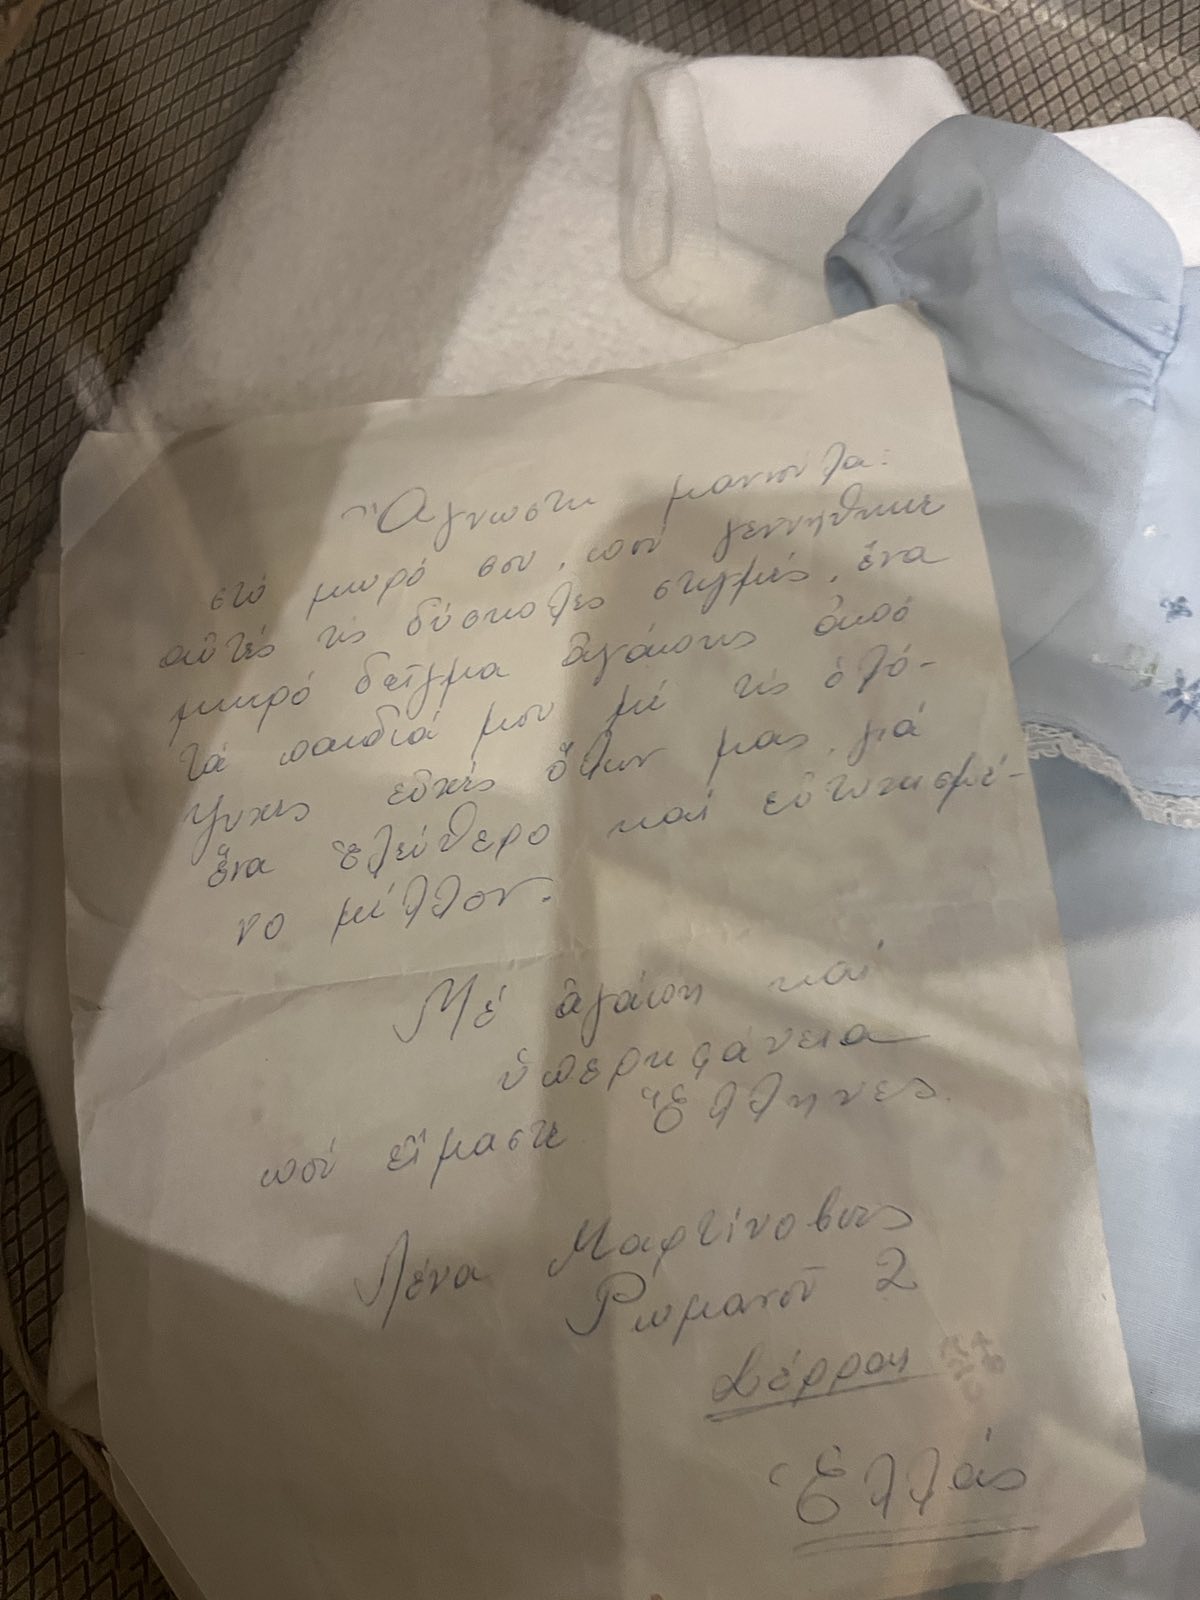 Ἄγνωστη μαννούλα:
στό μικρό σου, πού γεννήθηκε
αὐτές τίς δύσκολες στιγμές, ἕνα
μικρό δεῖγμα ἀγάπης ἀπό
τά παιδιά μου μέ τίς ὁλό-
ψυχες εὐχές ὅλων μας, γιά
ἕνα ἐλεύθερο καί εὐτυχισμέ-
νο μέλλον.
Μέ ἀγάπη καί
ὑπερηφάνεια
πού εἴμαστε Ἕλληνες
Λένα Μαρτίνοβιτς
Ρωμανοῦ 2
Σέρραι
Ἑλλάς